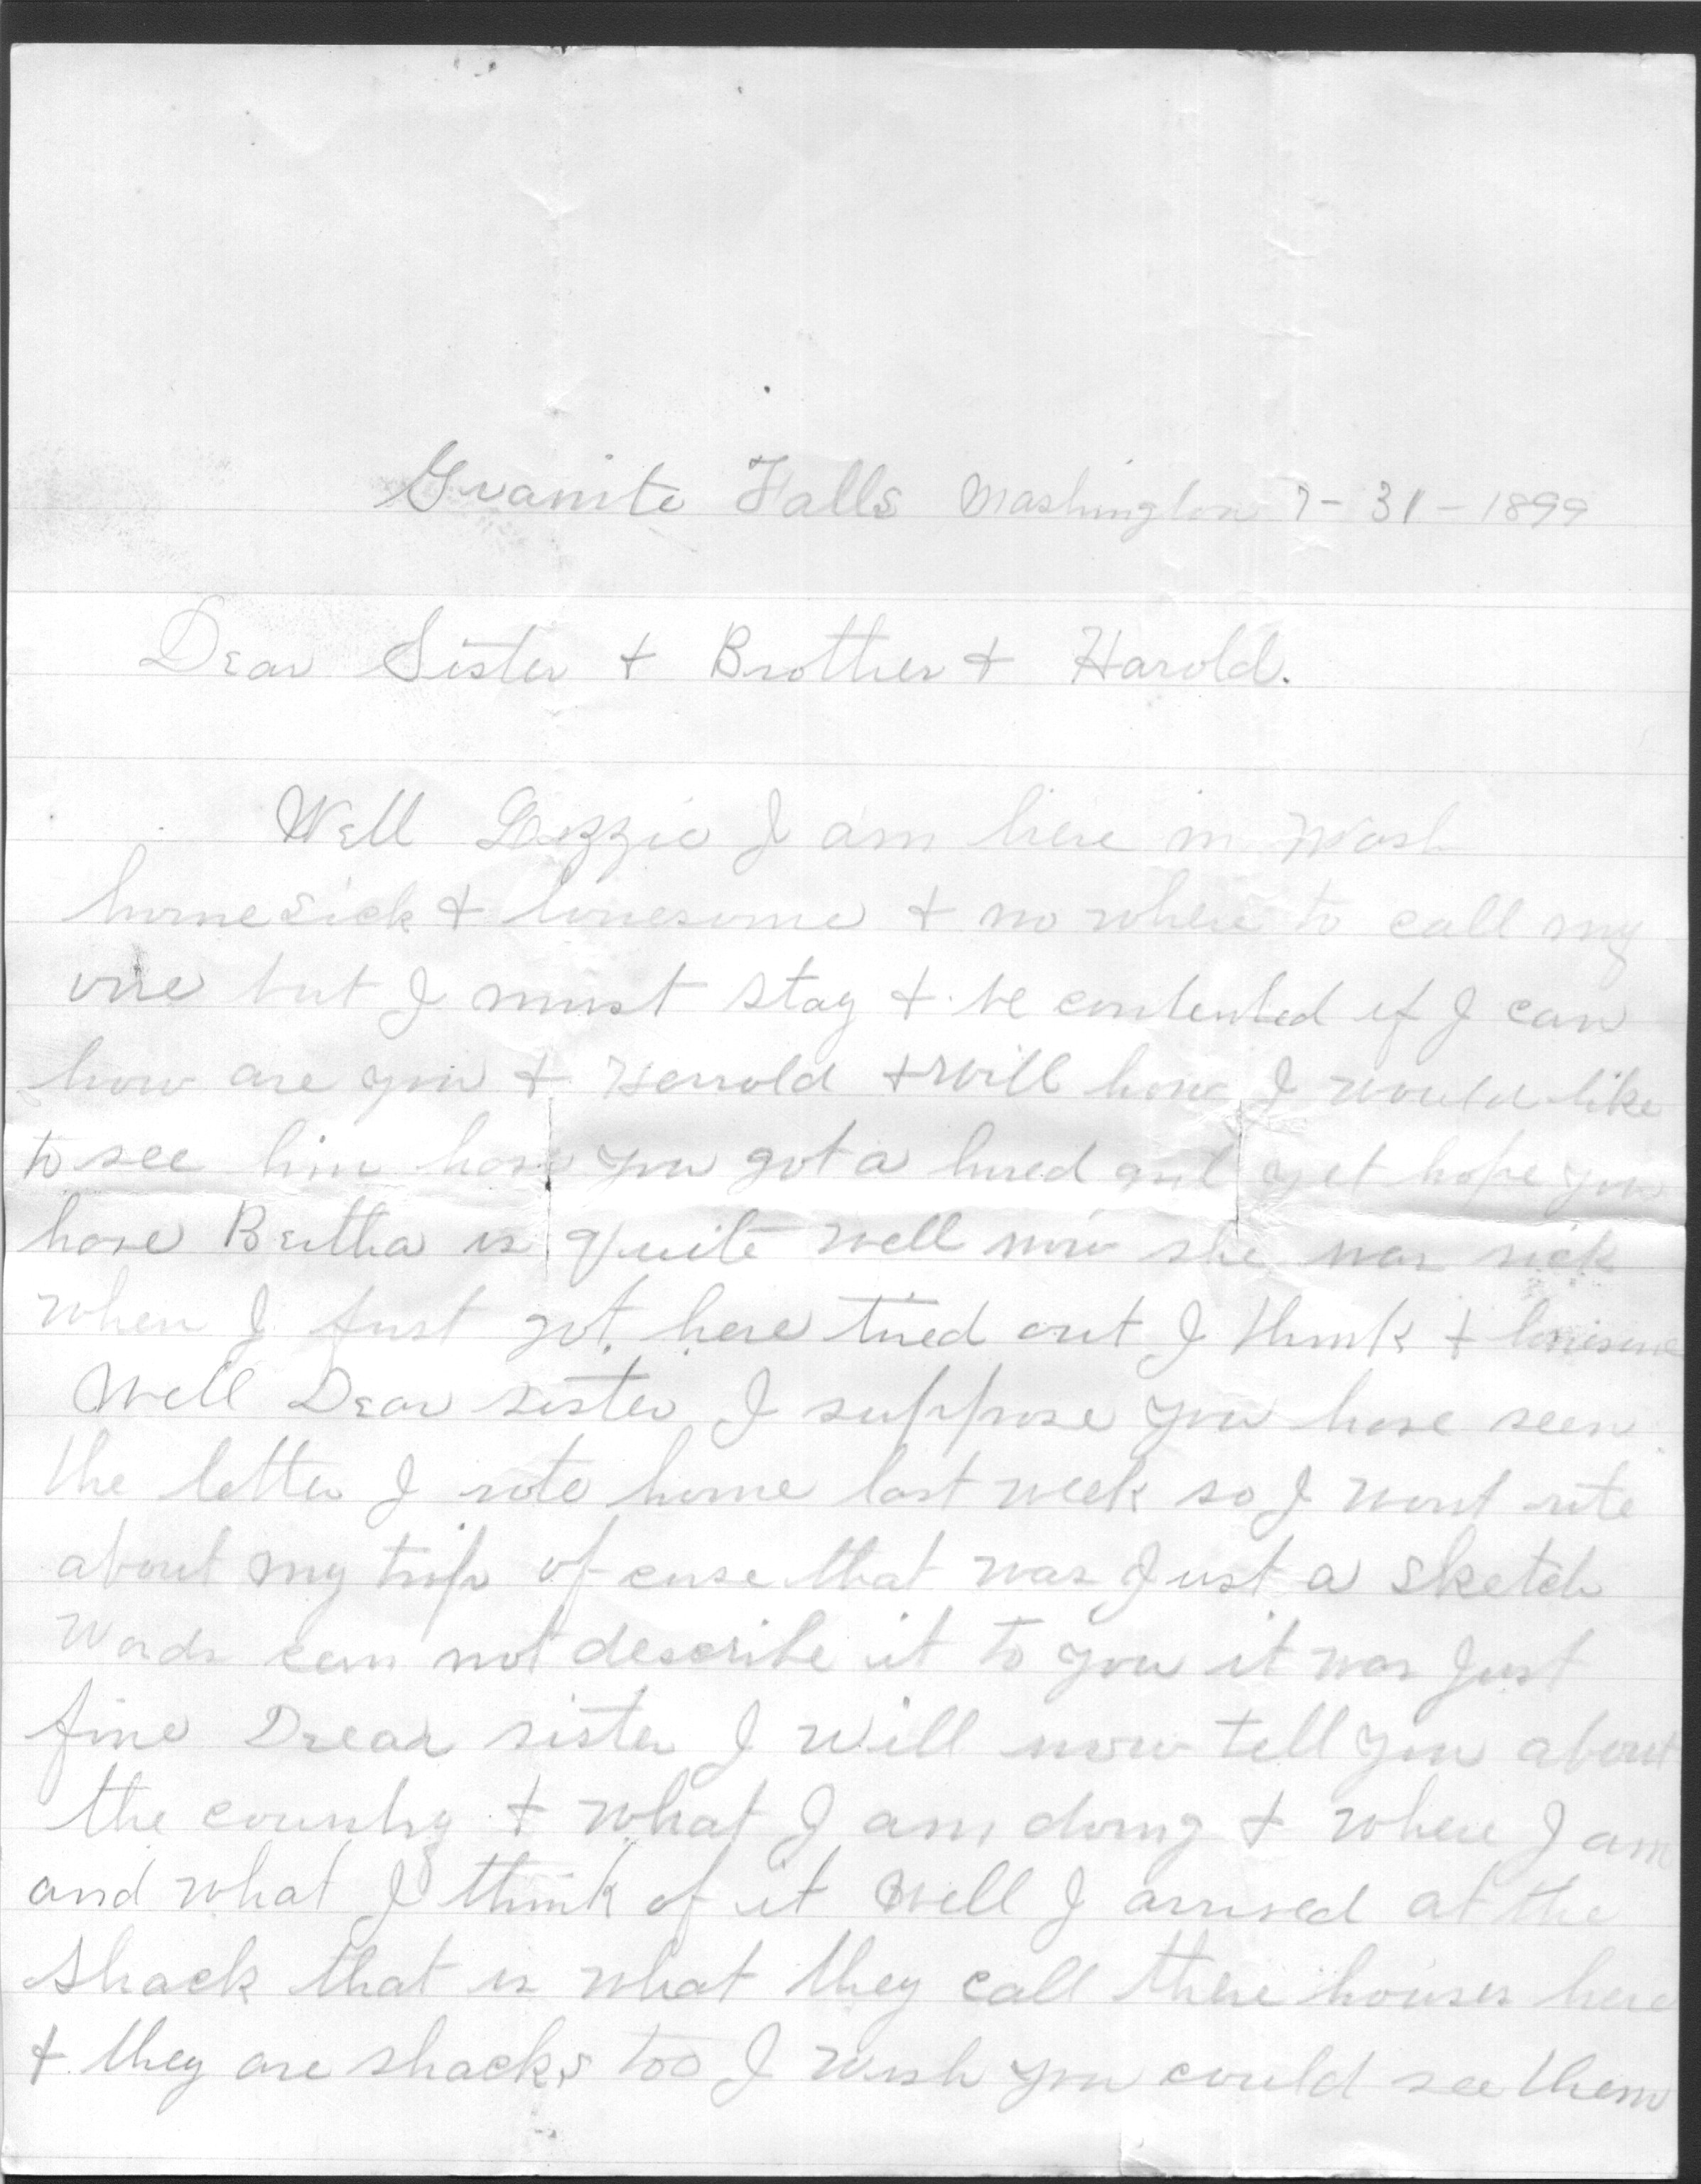 Granite Falls Washington 7-31-1899
Dear Sister + Brother + Harold.
Well Lizzie I am here in Wash
homesick + lonesome + no where to call my
one but I must stay + be contented if I can
how are you + Harrold + Will how I would like
to see him have you got a hired girl yet hope you
have Bertha is quite well now she was sick
when I first got here tired out I think + lonesome
Well Dear sister I suppose you have seen
the letter I rote home last week so I wont rite
about my trip of curse that was Just a sketch
Words can not describe it to you it was Just
fine Drear sister I will now tell you about
the country + what I am doing + where I am
and what I think of it Well I arrived at the
shack that is what they call there houses here
+ they are shacks too I wish you could see them